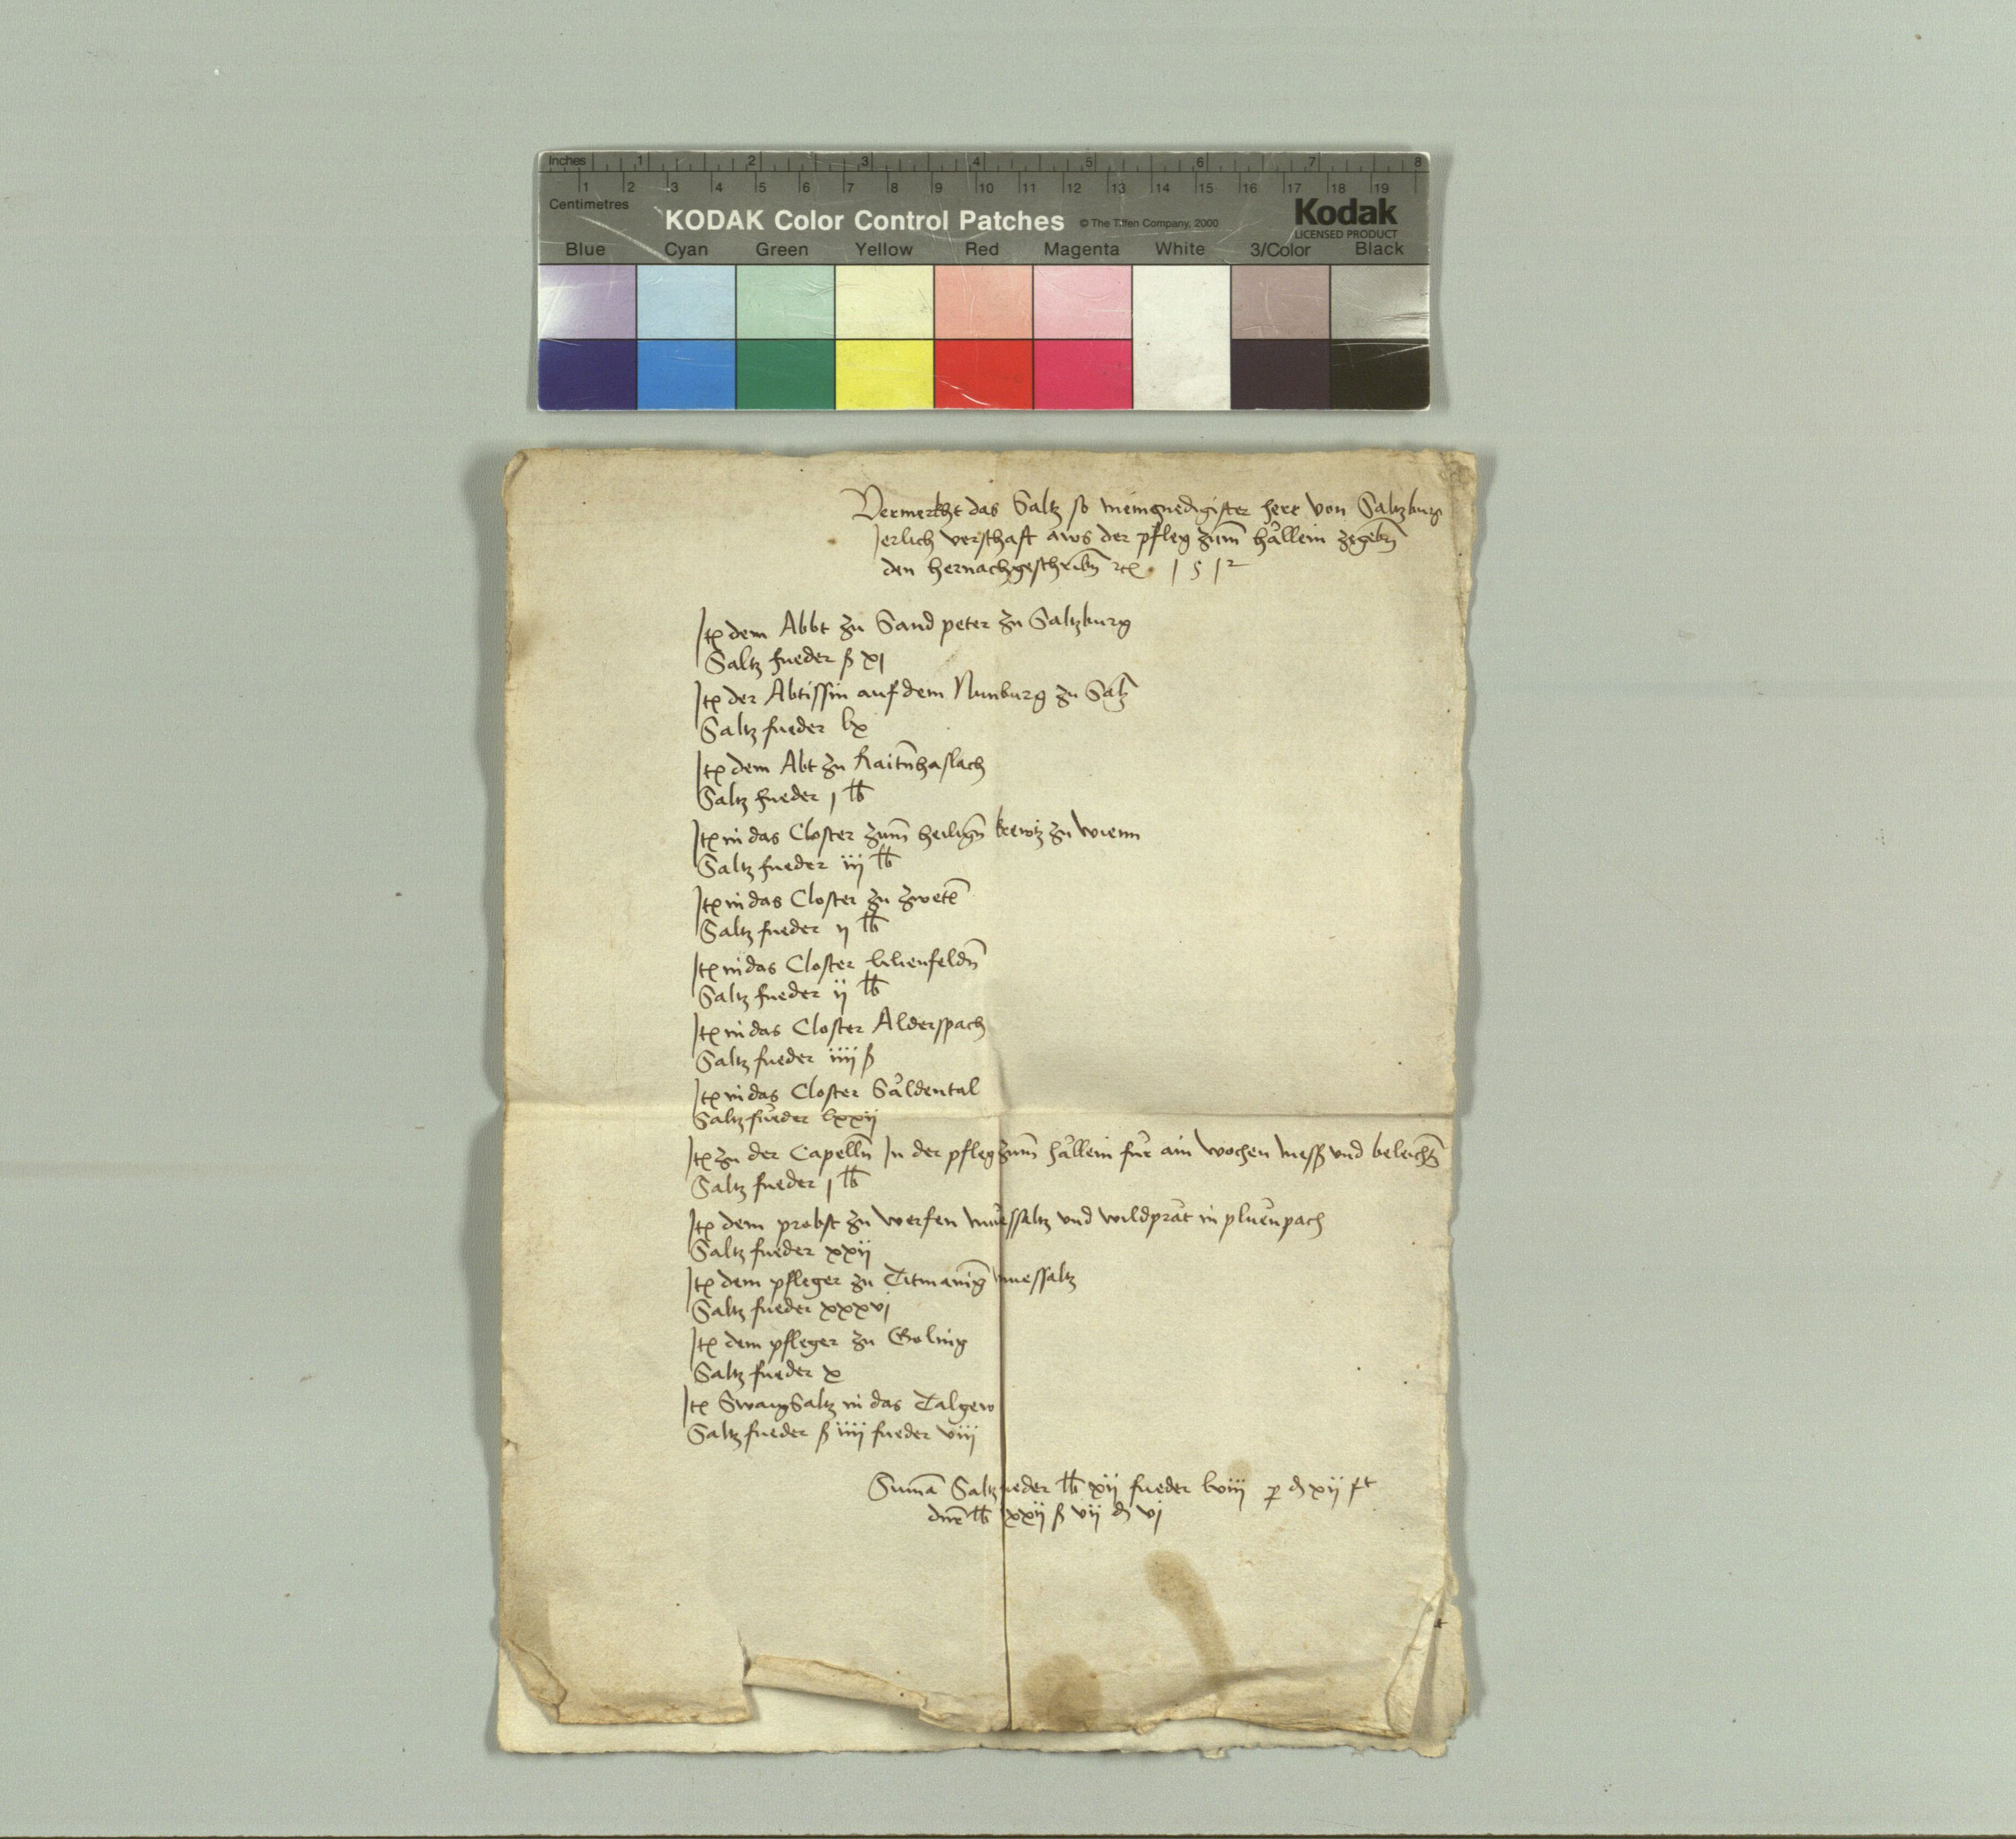 Inches 1 2 3 4 5 6 7 8
1 2 3 4 5 6 7 8 9 10 11 12 13 14 15 16 17 18 19
Centimetres
KODAK Color Control Patches © The Tiffen Company, 2000 Kodak
LICENSED PRODUCT
Blue Cyan Green Yellow Red Magenta White 3/Color Black
Vermerkht das Saltz so mein gnedigister herr von Saltzburg
Jerlich verschaft aws der pfleg zum̄ hållein zegebn̄
den hernachgeschribn̄ ꝛc 1512
Itꝫ dem Abbt zu Sand peter zu Saltzburg
Saltz fueder ß xj
Itꝫ der Abtissin auf dem Nunburg zu Saltz̄
Saltz fueder lx
Itꝫ dem Abt zu Raitn̄haslach
Saltz fueder j lb
Itꝫ in das Closter zum̄ heilign̄ krewtz zu wienn
Saltz fueder iij lb
Itꝫ in das Closter zu zwetl̄
Saltz fueder ij lb
Itꝫ in das Closter lilienfeldn̄
Saltz fueder ij lb
Itꝫ in das Closter Alderspach
Saltz fueder iiij ß
Itꝫ in das Closter Såldental
Saltz fueder lxxij
Itꝫ zu der Capelln̄ In der pfleg zum̄ hållein für ain wochen mess und beleichtn̄
Saltz fueder j lb
Itꝫ dem probst zu werfen müessaltz und wildpråt in plüenpach
Saltz fueder xxij
Itꝫ dem pfleger zu Titmaninḡ muessaltz
Saltz fueder xxxvj
Itꝫ dem pfleger zu Goling
Saltz fueder x
Itꝫ Swangsaltz in das Talgew
Saltz fueder ß iiij fueder viij
Sum̄a Saltz fueder lb xij fueder lviij p ₰ xij
lb xxij ß vij ₰ vj